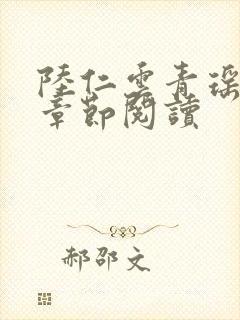 陸仁雲青瑶
章節閱讀
郝邵文